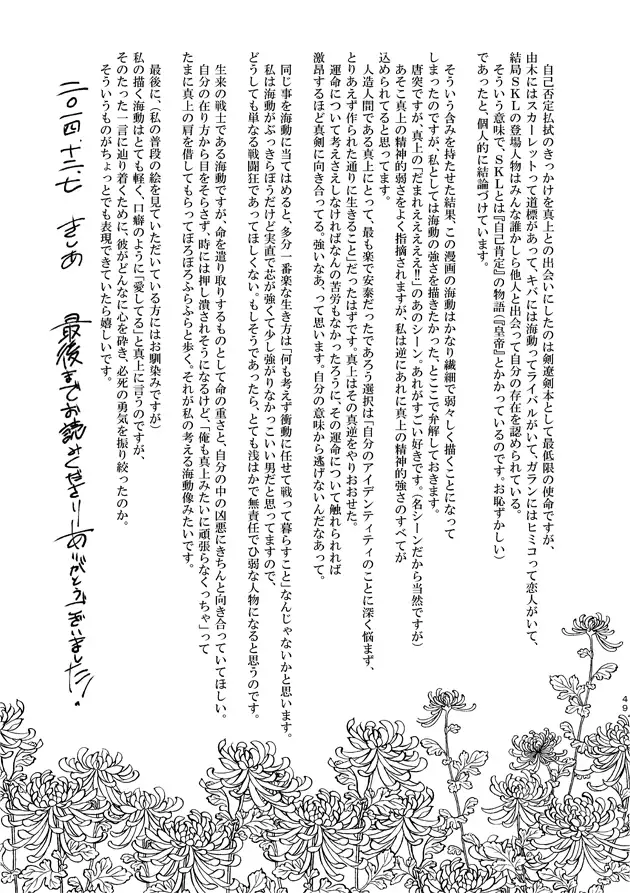 自己否定払拭のきっかけを真上との出会いにしたのは剣遼剣本として最低限の使命ですが、
由木にはスカーレットって道標があって、キバには海動ってライバルがいて、ガランにはヒミコって恋人がいて、
結局SKLの登場人物はみんな誰かしら他人と出会って自分の存在を認められている。
そういう意味で、SKLとは『自己肯定』の物語(『皇帝』とかかっているのです。お恥ずかしい)
であったと、個人的に結論づけています。
そういう含みを持たせた結果、この漫画の海動はかなり繊細で弱々しく描くことになって
しまったのですが、私としては海動の強さを描きたかった、とここで弁解しておきます。
唐突ですが、真上の「だまれえええええ!!」のあのシーン、あれがすごい好きです。(名シーンだから当然ですが)
あそこ真上の精神的弱さをよく指摘されますが、私は逆にあれに真上の精神的強さのすべてが
込められてると思ってます。
人造人間である真上にとって、最も楽で安泰だったであろう選択は「自分のアイデンティティのことに深く悩まず、
とりあえず作られた通りに生きること」だったはずです。真上はその真逆をやりおおせた。
運命について考えさえしなければなんの苦労もなかったろうに、その運命について触れられれば
激昂するほど真剣に向き合ってる。強いなあ、って思います。自分の意味から逃げないんだなあって。
同じ事を海動に当てはめると、多分一番楽な生き方は「何も考えず衝動に任せて戦って暮らすこと」なんじゃないかと思います。
私は海動がぶっきらぼうだけど実直で芯が強くて少し強がりなかっこいい男だと思ってますので、
どうしても単なる戦闘狂であってほしくない。もしそうであったら、とても浅はかで無責任でひ弱な人物になると思うのです。
生来の戦士である海動ですが、命を遣り取りするものとして命の重さと、自分の中の凶悪にきちんと向き合っていてほしい。
自分の在り方から目をそらさず、時には押し潰されそうになるけど、「俺も真上みたいに頑張らなくっちゃ」って
たまに真上の肩を借してもらってぼろぼろふらふらと歩く。それが私の考える海動像みたいです。
最後に、(私の普段の絵を見ていただいている方にはお馴染みですが)
私の描く海動はとても軽く、口癖のように「愛してる」と真上に言うのですが、
そのたった一言に辿り着くために、彼がどんなに心を砕き、必死の勇気を振り絞ったのか。
そういうものがちょっとでも表現できていたら嬉しいです。
二〇一四 十二、七 きしあ
最後までお読みくださりありがとうございました!
49